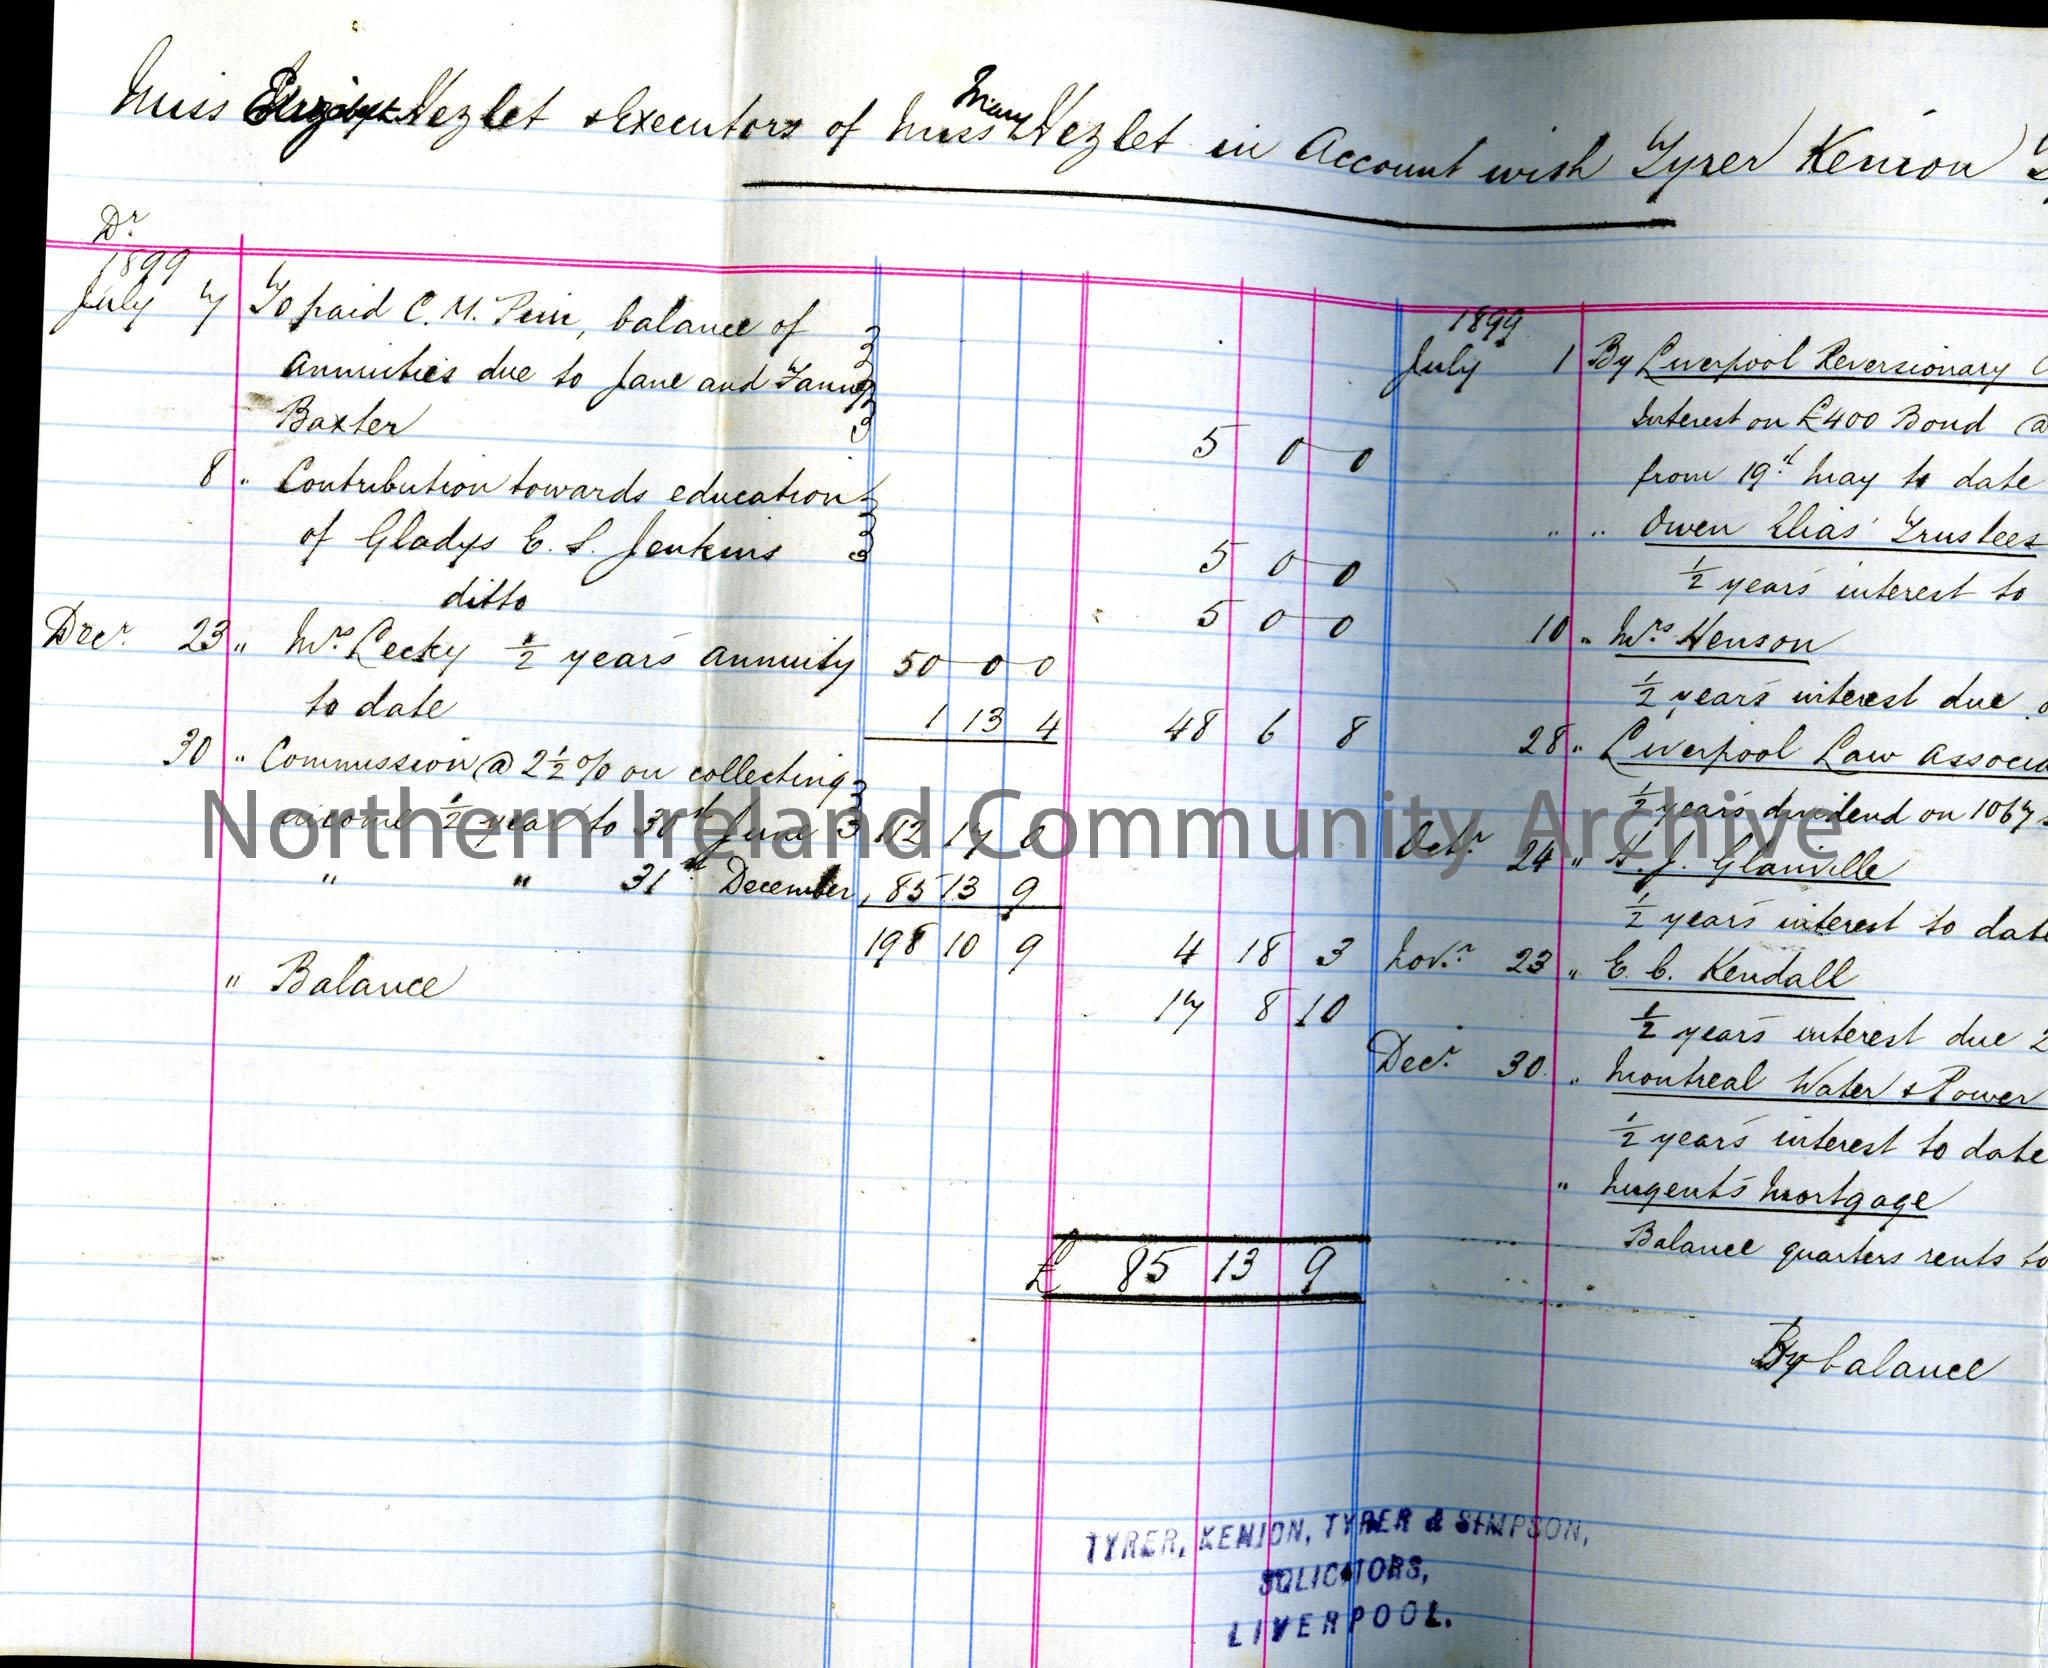 Miss Hezlet & Executors of Miss Mary Hezlet in Account with Tyrer Kenion
Dr
1899
July 7 To paid C. M. balance of
annuities due to Jane and Fanny
Baxter 5 0 0
8 " Contribution towards education
of Gladys E. S. Jenkins 5 0 0
ditto 5 0 0
Decr. 23 " Mrs Lecky ½ years annuity 50 0 0
to date 1 13 4 48 6 8
30 " Commission @ 2½ % on collecting
income ½ year to 30th June 112 17 0
" " 31st December, 85 13 9
198 10 9 4 18 3
" Balance 17 8 10
£ 85 13 9
1899
July 1 By Liverpool Reversionary
Interest on £400 Bond @
from 19th May to date
" " Owen Elias' Trustees
½ years interest to
10 " Mrs Henson
½ years interest due
28 " Liverpool Law Associa
½ years dividend on 1067
Octr. 24 " J. Glanville
½ years interest to date
Novr. 23 " E. C. Kendall
½ years interest due 2
Decr. 30 " Montreal Water & Power
½ years interest to date
" Nugent's Mortgage
Balance quarters rents to
By balance
TYRER, KENION, TYRER & SIMPSON,
SOLICITORS,
LIVERPOOL.
Northern Ireland Community Archive